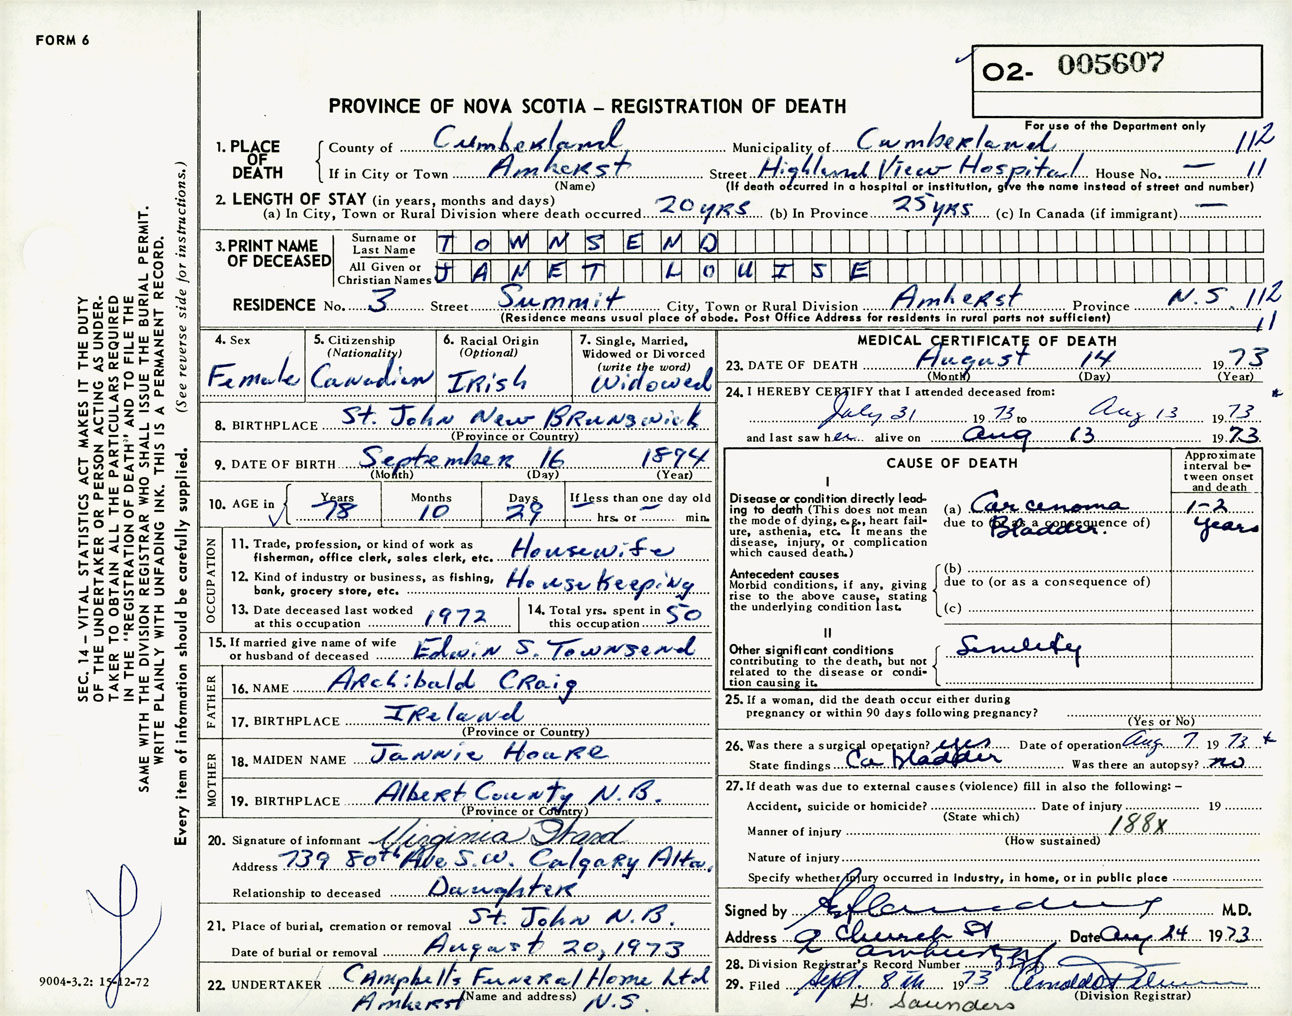 FORM 6
O2- 005607
For use of the Department only
PROVINCE OF NOVA SCOTIA – REGISTRATION OF DEATH
SEC. 14 – VITAL STATISTICS ACT MAKES IT THE DUTY
OF THE UNDERTAKER OR PERSON ACTING AS UNDER-
TAKER TO OBTAIN ALL THE PARTICULARS REQUIRED
IN THE "REGISTRATION OF DEATH" AND TO FILE THE
SAME WITH THE DIVISION REGISTRAR WHO SHALL ISSUE THE BURIAL PERMIT.
WRITE PLAINLY WITH UNFADING INK. THIS IS A PERMANENT RECORD.
Every item of information should be carefully supplied. (See reverse side for instructions.)
1. PLACE OF DEATH County of Cumberland Municipality of Cumberland 112
If in City or Town Amherst Street Highland View Hospital House No. — 11
(Name) (If death occurred in a hospital or institution, give the name instead of street and number)
2. LENGTH OF STAY (in years, months and days)
(a) In City, Town or Rural Division where death occurred 20 yrs (b) In Province 25 yrs (c) In Canada (if immigrant) —
3. PRINT NAME OF DECEASED Surname or Last Name TOWNSEND
All Given or Christian Names JANET LOUISE
RESIDENCE No. 3 Street Summit City, Town or Rural Division Amherst Province N.S. 112
(Residence means usual place of abode. Post Office Address for residents in rural parts not sufficient) 11
4. Sex Female
5. Citizenship (Nationality) Canadian
6. Racial Origin (Optional) Irish
7. Single, Married, Widowed or Divorced (write the word) Widowed
8. BIRTHPLACE St. John New Brunswick
(Province or Country)
9. DATE OF BIRTH September 16 1894
(Month) (Day) (Year)
10. AGE in Years 78 Months 10 Days 29 If less than one day old — hrs. or — min.
OCCUPATION
11. Trade, profession, or kind of work as fisherman, office clerk, sales clerk, etc. Housewife
12. Kind of industry or business, as fishing, bank, grocery store, etc. Housekeeping
13. Date deceased last worked at this occupation 1972
14. Total yrs. spent in this occupation 50
15. If married give name of wife or husband of deceased Edwin S. Townsend
FATHER
16. NAME Archibald Craig
17. BIRTHPLACE Ireland
(Province or Country)
MOTHER
18. MAIDEN NAME Jannie Hoare
19. BIRTHPLACE Albert County N.B.
(Province or Country)
20. Signature of informant Virginia Ward
Address 739 80th Ave S.W. Calgary Alta.
Relationship to deceased Daughter
21. Place of burial, cremation or removal St. John N.B.
Date of burial or removal August 20, 1973
22. UNDERTAKER Campbell's Funeral Home Ltd
(Name and address)
Amherst N.S.
9004-3.2: 15-12-72
MEDICAL CERTIFICATE OF DEATH
23. DATE OF DEATH August 14 1973
(Month) (Day) (Year)
24. I HEREBY CERTIFY that I attended deceased from:
July 31 1973 to Aug 13 1973
and last saw her alive on Aug 13 1973
CAUSE OF DEATH
Approximate interval between onset and death
I
Disease or condition directly lead-
ing to death (This does not mean
the mode of dying, e.g., heart fail-
ure, asthenia, etc. It means the
disease, injury, or complication
which caused death.)
(a) Carcenoma 1-2
due to (or as a consequence of) Bladder. years
Antecedent causes
Morbid conditions, if any, giving
rise to the above cause, stating
the underlying condition last.
(b)
due to (or as a consequence of)
(c)
II
Other significant conditions
contributing to the death, but not
related to the disease or condi-
tion causing it.
Senility
25. If a woman, did the death occur either during
pregnancy or within 90 days following pregnancy?
(Yes or No)
26. Was there a surgical operation? yes Date of operation Aug 7 1973
State findings Ca bladder Was there an autopsy? no
27. If death was due to external causes (violence) fill in also the following: –
Accident, suicide or homicide? Date of injury 19
(State which)
Manner of injury 188x
(How sustained)
Nature of injury
Specify whether injury occurred in industry, in home, or in public place
Signed by M.D.
Address 2 Church St Date Aug 24 1973
Amherst
28. Division Registrar's Record Number
29. Filed Sept. 8th 1973
(Division Registrar)
G. Saunders